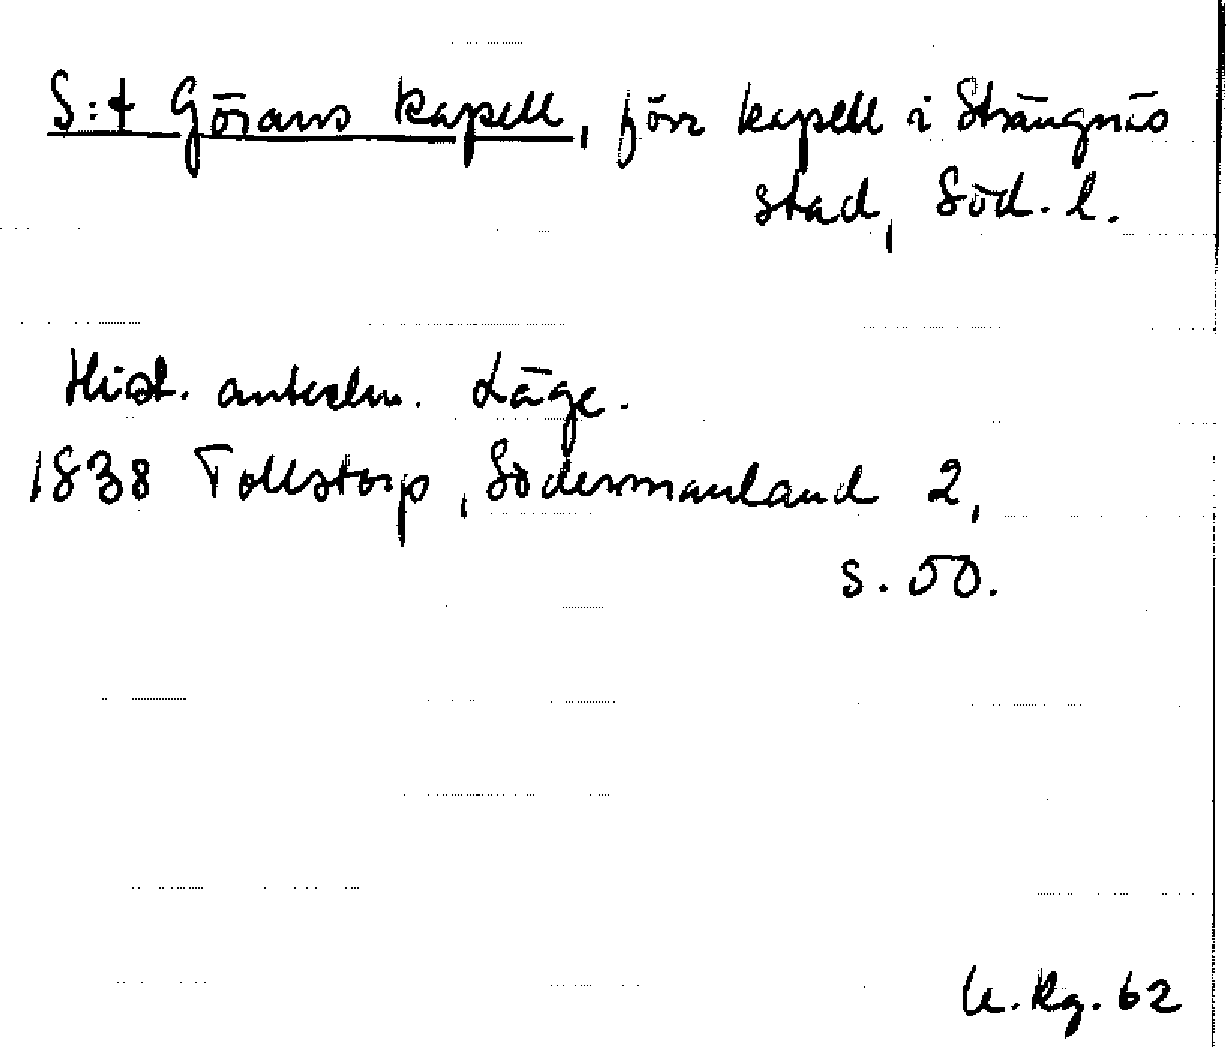 S:t Görans kapell, förr kapell i Strängnäs
stad, Söd. l.
Hist. anteckn. Läge.
1838 Tollstorp, Södermanland 2,
s. 50.
U. Rg. 62